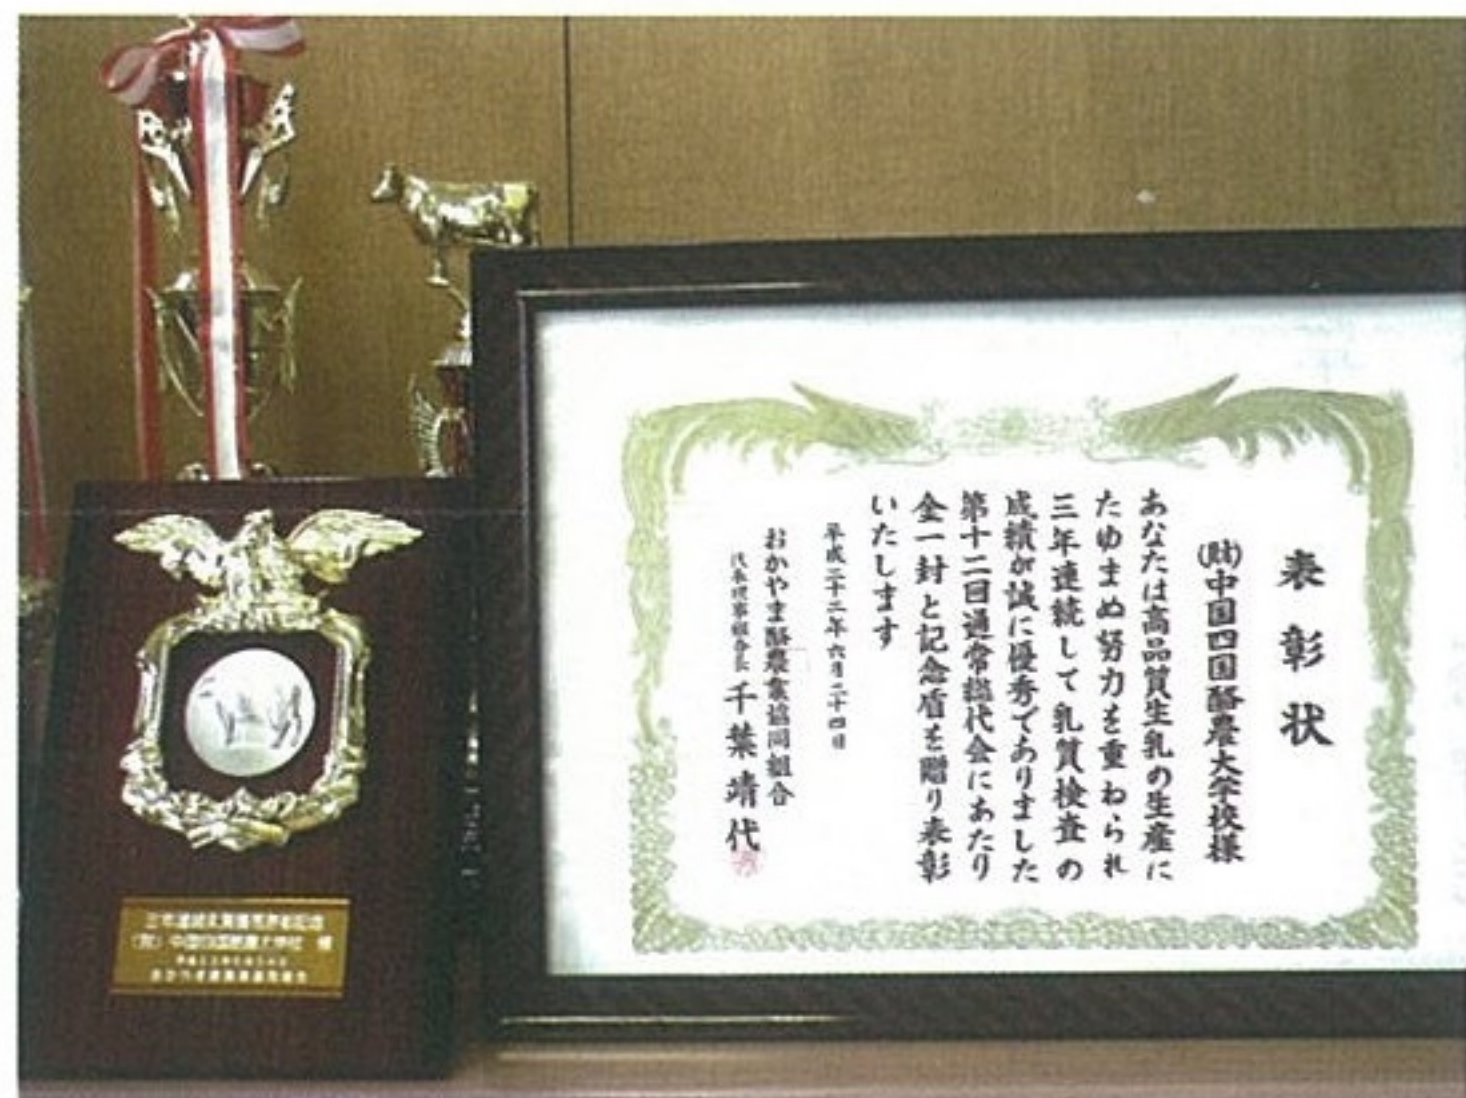 表彰状
(財)中国四国酪農大学校様
あなたは高品質生乳の生産に
たゆまぬ努力を重ねられ
三年連続して乳質検査の
成績が誠に優秀でありました
第十二回通常総代会にあたり
金一封と記念盾を贈り表彰
いたします
平成二十二年六月二十四日
おかやま酪農業協同組合
代表理事組合長 千葉靖代
(財)中国四国酪農大学校 様